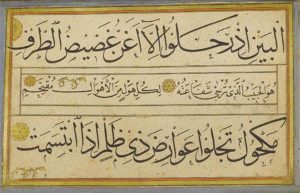 البين اذ رحلوا الا اغن غضيض الطرف
هو الحبيب الذي ترجى شفاعته لكل هول من الاهوال مقتحم
مكحول تجلوا عوارض ذي ظلم اذا ابتسمت